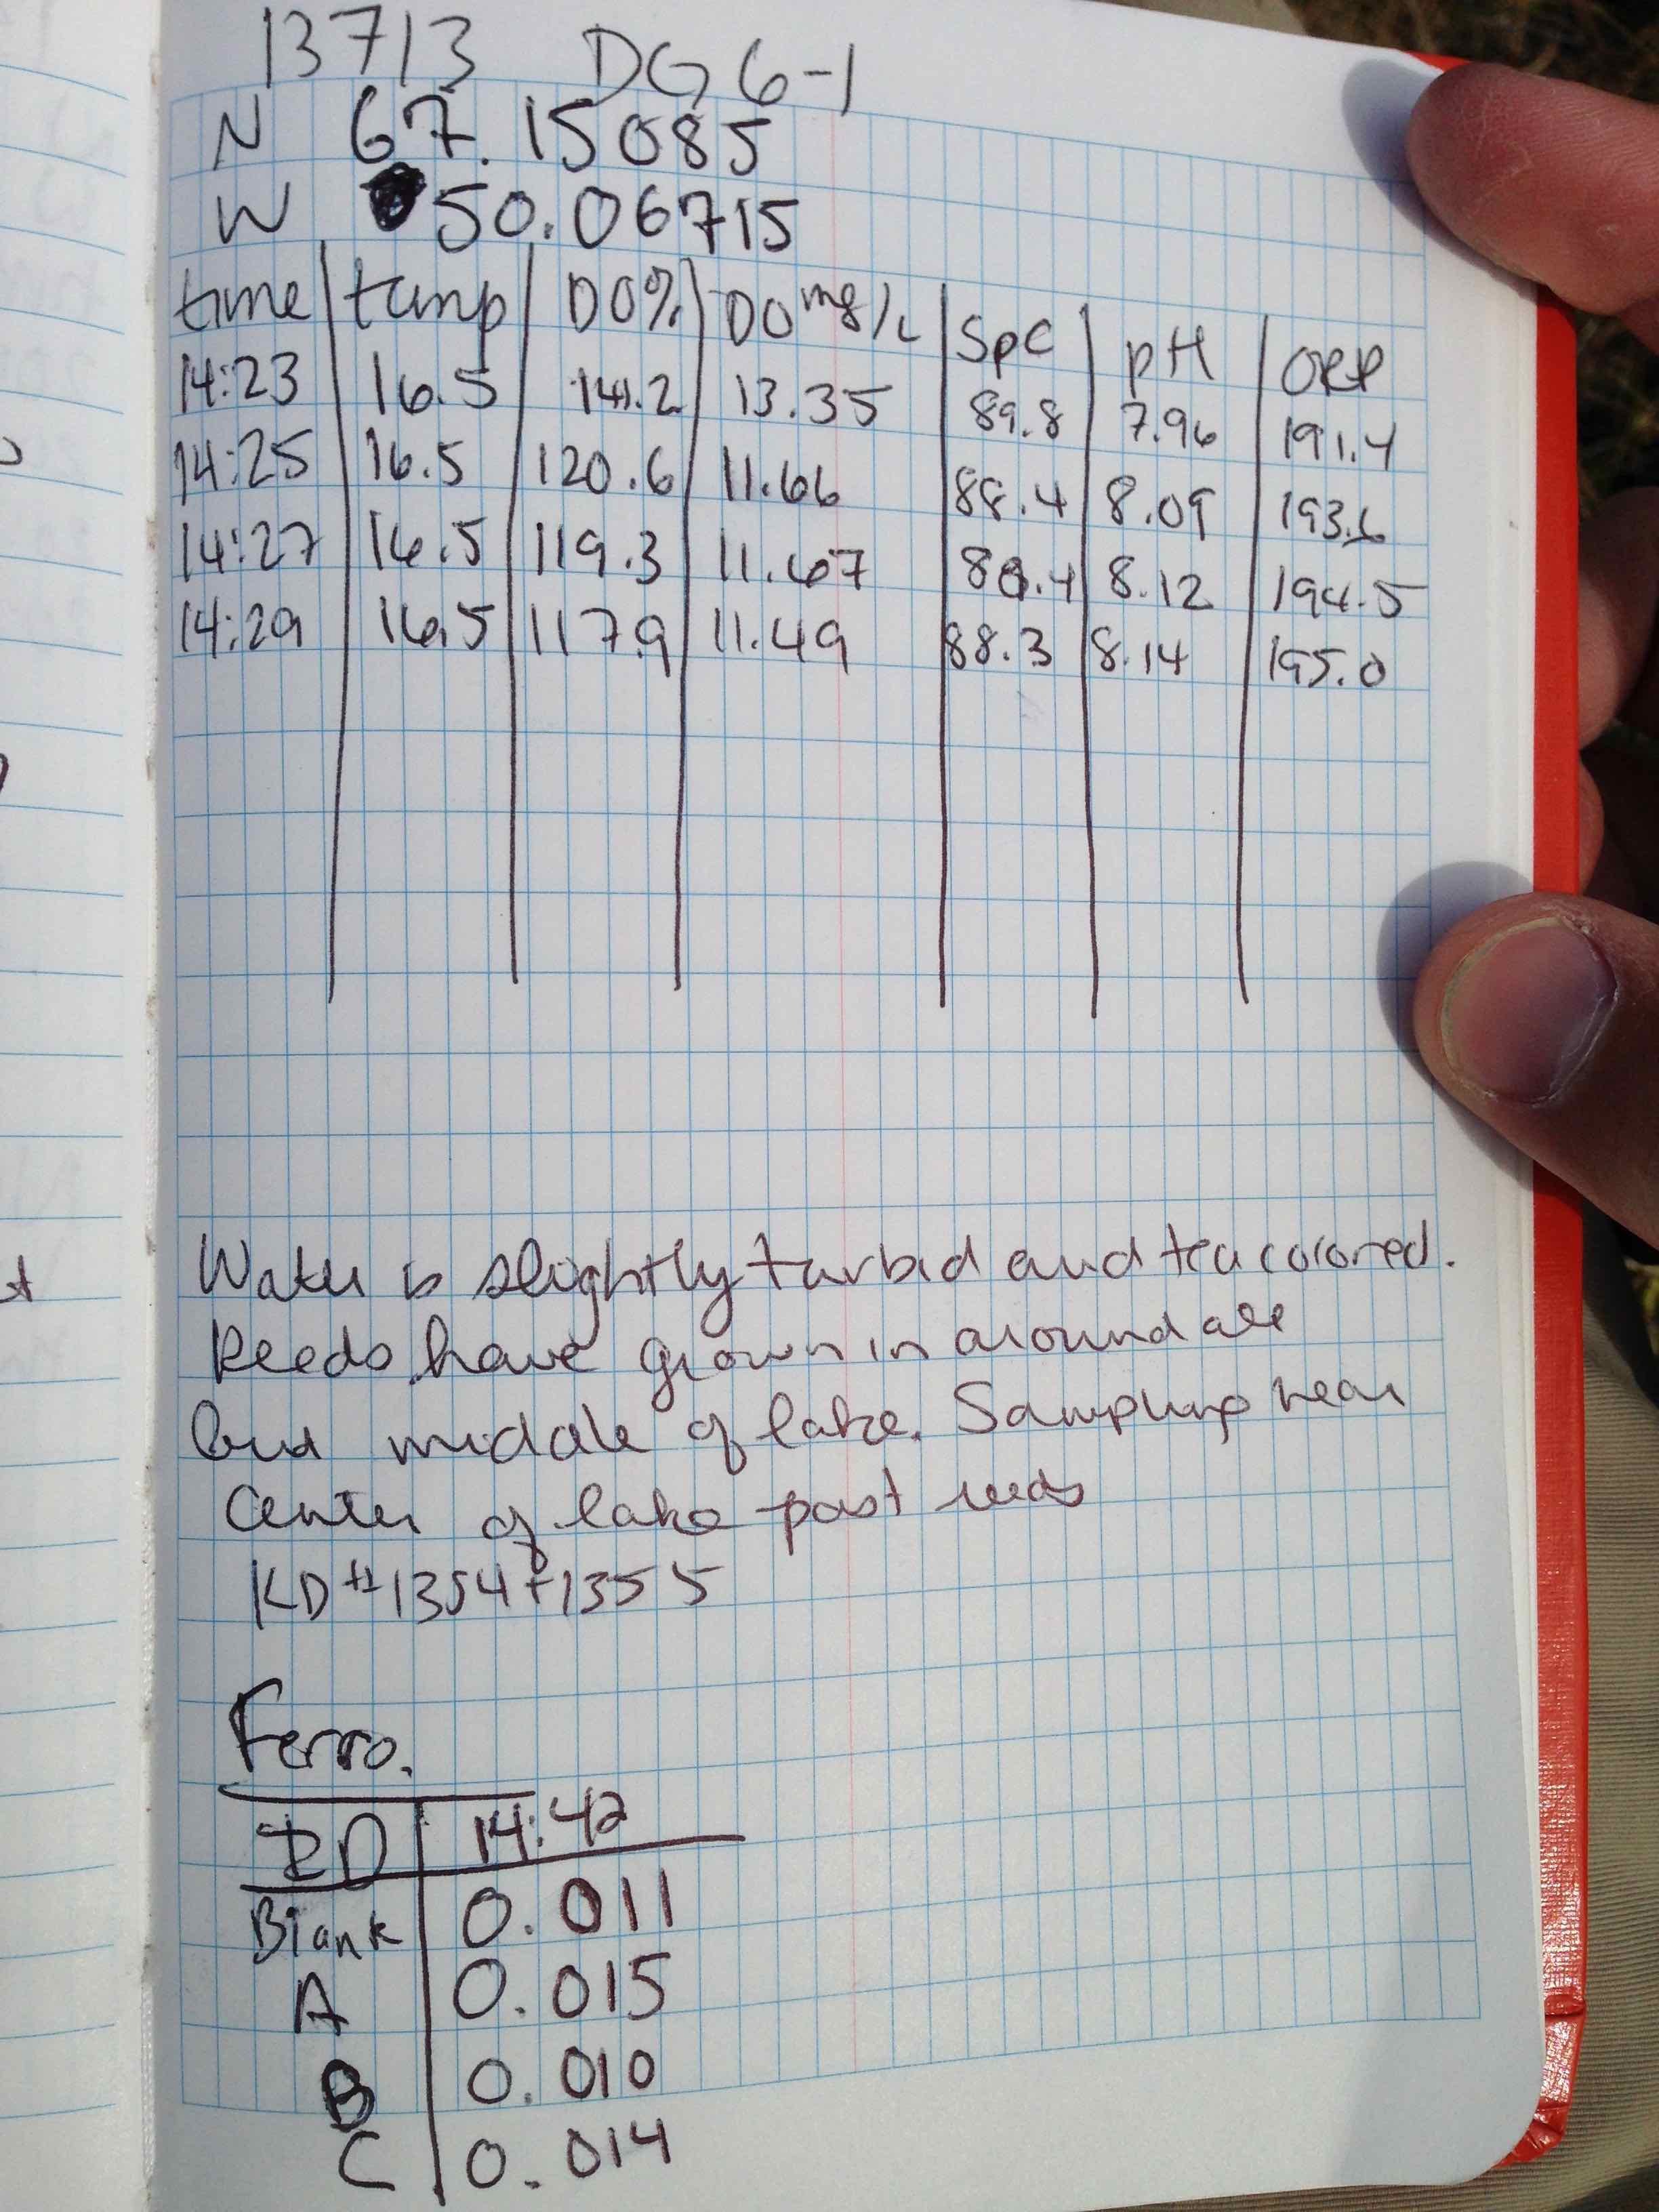 13713 DG 6-1
N 67.15085
W 50.06715
time temp DO% DO mg/L SpC pH ORP
14:23 16.5 141.2 13.35 89.8 7.96 191.4
14:25 16.5 120.6 11.66 88.4 8.09 193.6
14:27 16.5 119.3 11.67 88.4 8.12 194.5
14:29 16.5 117.9 11.49 88.3 8.14 195.0
Water is slightly turbid and tea colored.
Reeds have grown in around all
but middle of lake. Sampling near
Center of lake past reeds
KD #1354+1355
Ferro.
ID 14:42
Blank 0.011
A 0.015
B 0.010
C 0.014